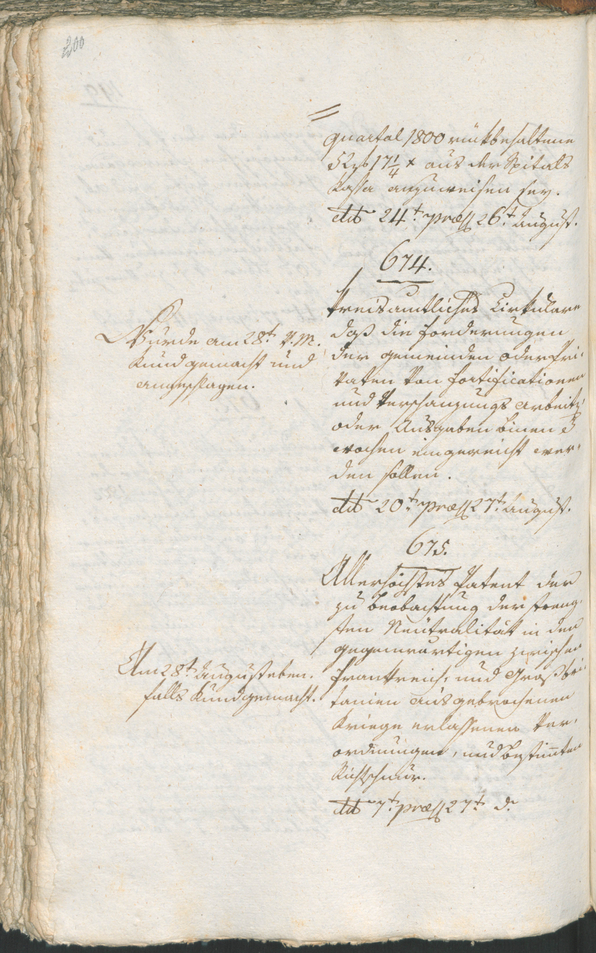 200
quartal 1800 rückbehaltene
52 f 17 1/4 x aus der Spitals
Kassa anzuweisen sey.
dtto 24t. præs 26t. August.
674.
Kreisamtliches Cirkulare
daß die Forderungen
der Gemeinden oder Pri-
vaten von Fortificationen
und Verschanzungs Arbeite
oder Ausgaben binen
wochen eingereicht wer-
den sollen.
dtto 20t. præs 27t. August.
Wurde am 28t. v. M.
Kundgemacht und
angeschlagen.
675.
Allerhöchstes Patent der
zu Beobachtung der streng-
sten Neutralität in dem
gegenwärtigen zwischen
Frankreich und Großbri-
tanien ausgebrochenen
Kriege erlassenen Ver-
ordnungen, und bestimten
Richtschnur.
dtto 7t. præs 27t. d
Am 28t. August eben-
falls Kundgemacht.